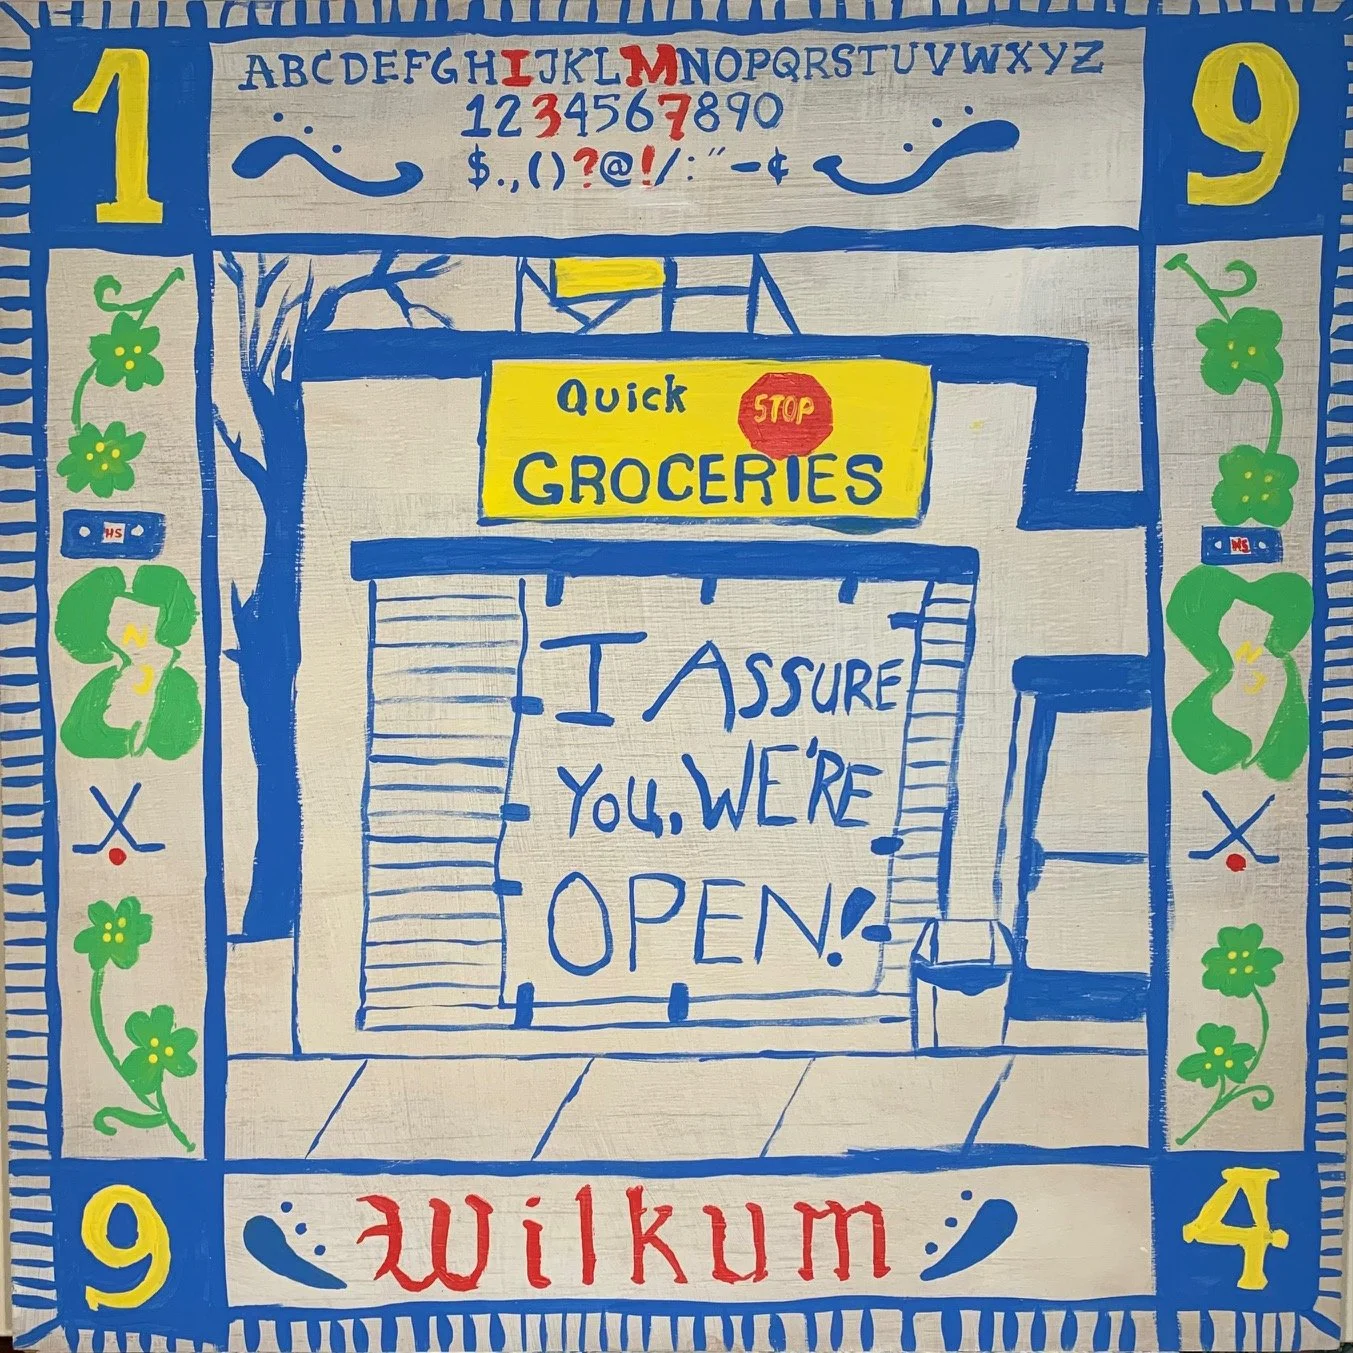 1
9
ABCDEFGHIJKLMNOPQRSTUVWXYZ
1234567890
$.,()?@!/:"-¢
Quick STOP
GROCERIES
HS
HS
I ASSURE
YOU, WE'RE
OPEN!
NJ
NJ
Wilkum
9
4